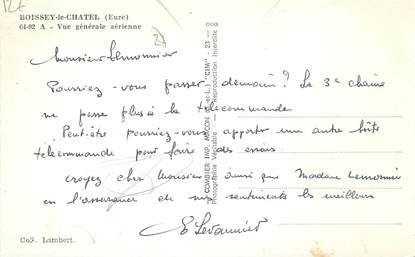 12€
BOISSEY-le-CHATEL (Eure)
61-92 A - Vue générale aérienne
Monsieur Lemonnier
Pourriez-vous passer demain? La 3e chaine
ne passe plus à la télécommande.
Peut-être pourriez-vous apporter une autre boîte
télécommande pour faire des essais.
Croyez cher Monsieur ainsi que Madame Lemonnier
en l'assurance de mes sentiments les meilleurs
E Levannier
COMBIER IMP. MACON (S.-et-L.) "CIM" - 23 - 000
Photographie Véritable - Reproduction Interdite
Coll. Lambert.